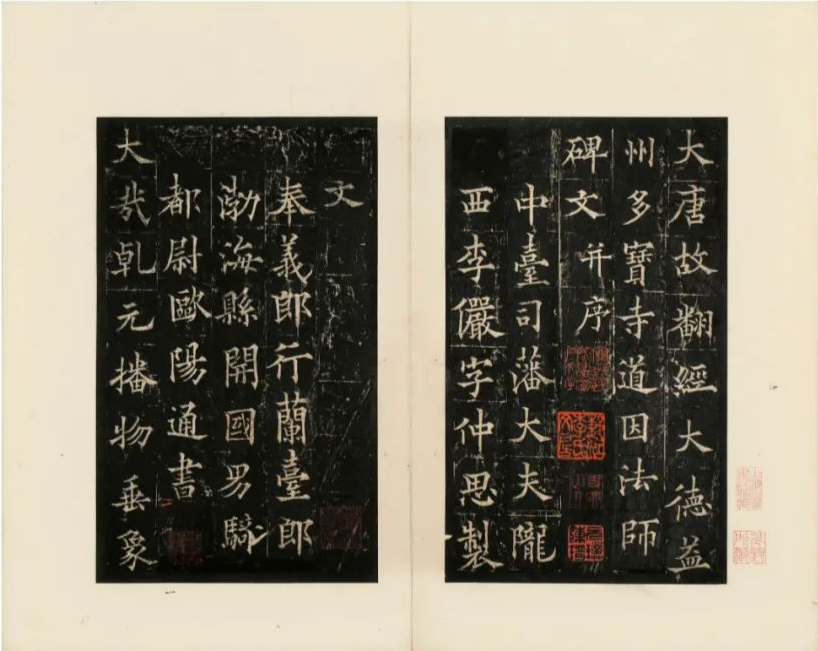 大唐故翻經大德益
州多寶寺道因法師
碑文并序
中臺司藩大夫隴
西李儼字仲思製
文
奉義郎行蘭臺郎
勃海縣開國男騎
都尉歐陽通書
大哉乹元播物垂象